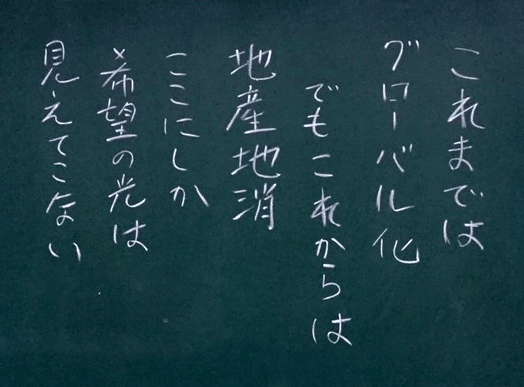 これまでは
グローバル化
でもこれからは
地産地消
ここにしか
希望の光は
見えてこない